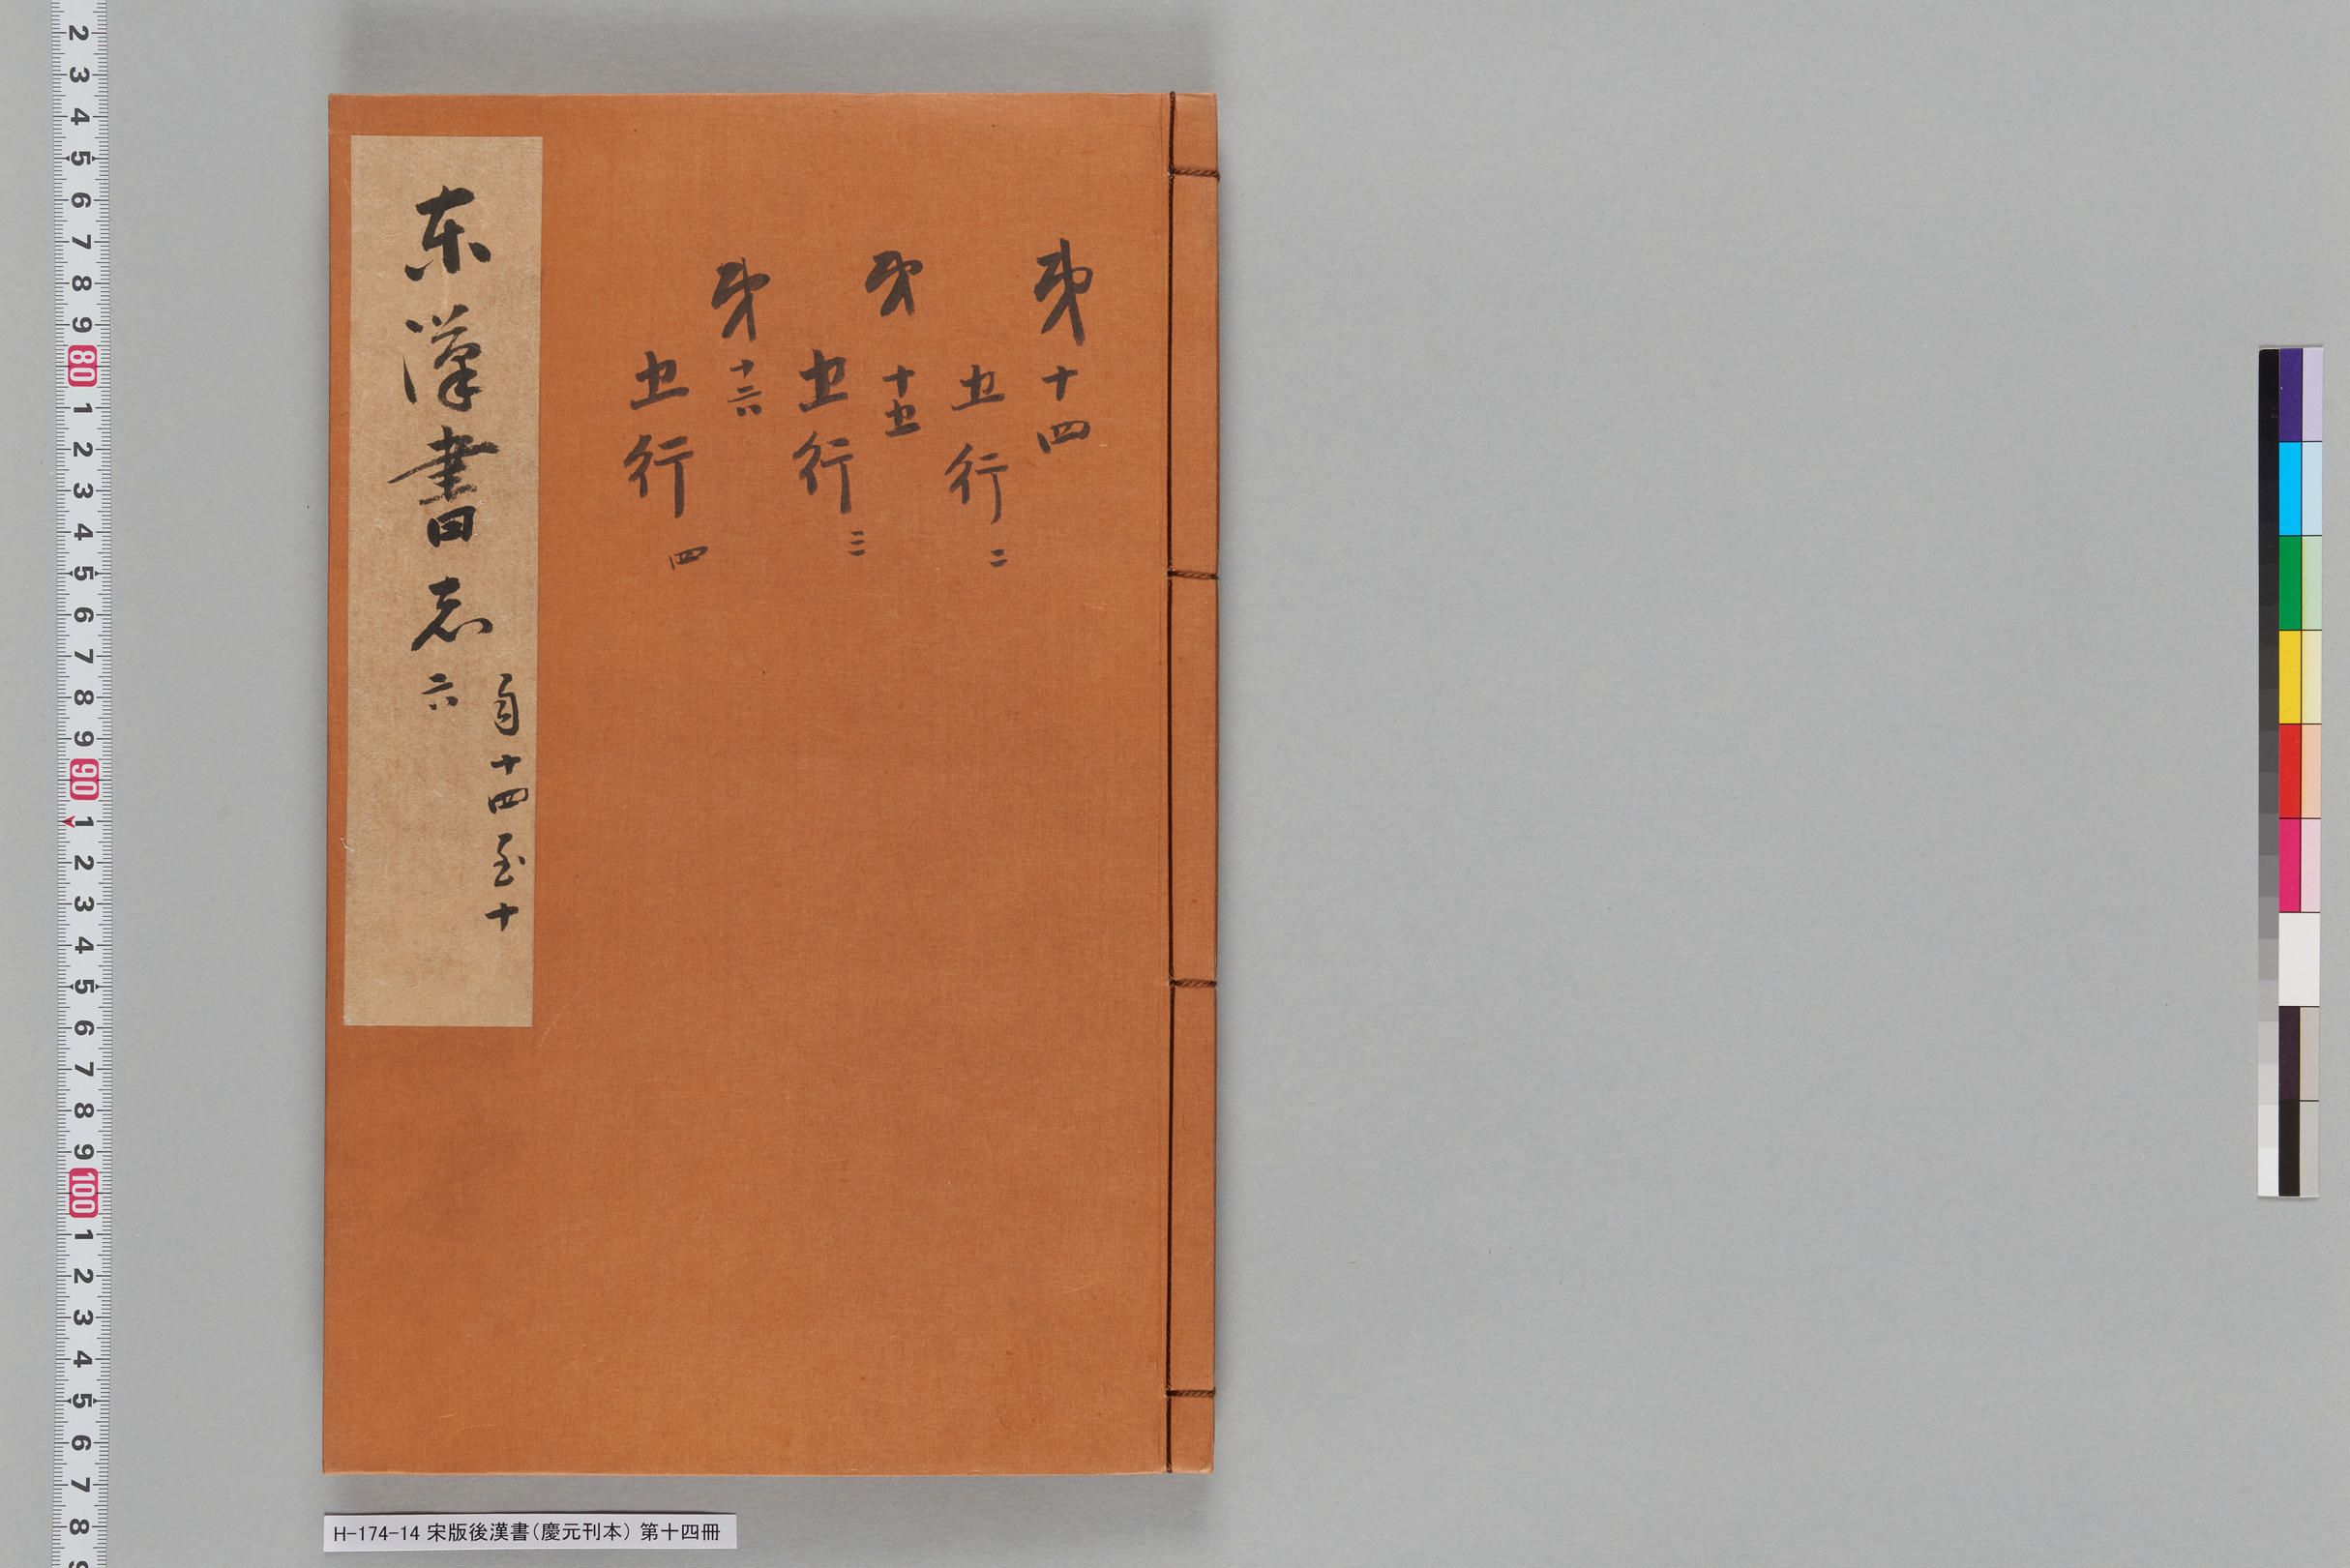 第十四
五行二
第十五
五行三
第十六
五行四
東漢書志六
自十四至十
H-174-14 宋版後漢書(慶元刊本) 第十四冊
2 3 4 5 6 7 8 9 80 1 2 3 4 5 6 7 8 9 90 1 2 3 4 5 6 7 8 9 100 1 2 3 4 5 6 7 8 9